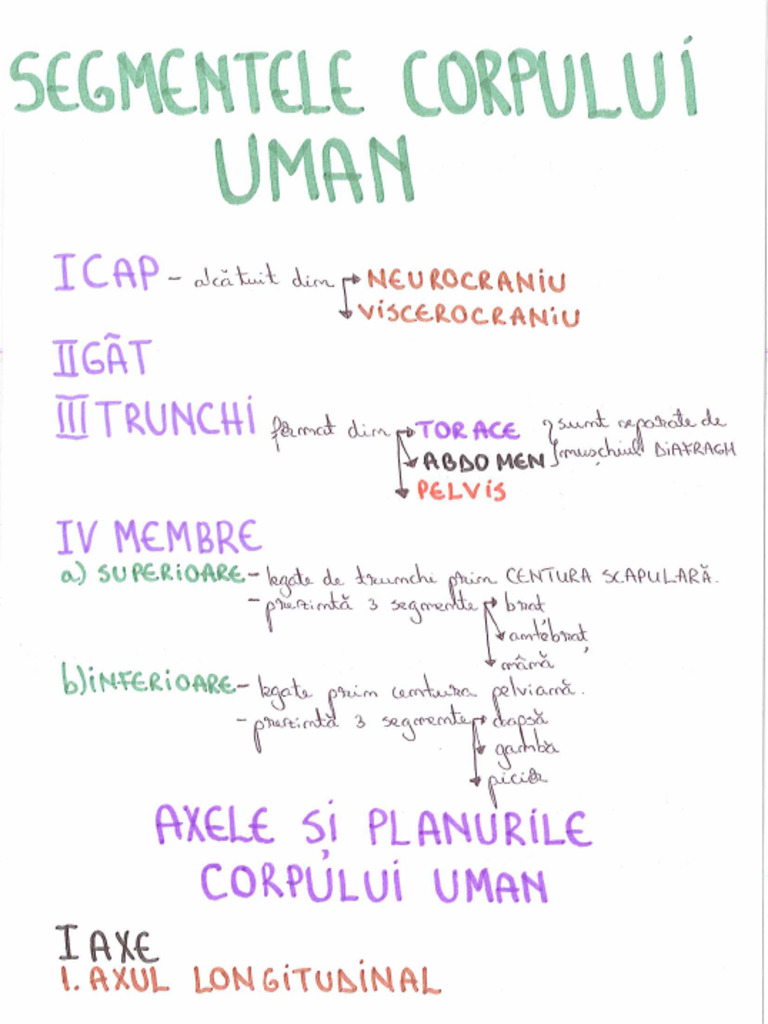 SEGMENTELE CORPULUI
UMAN
I CAP - alcătuit din NEUROCRANIU
VISCEROCRANIU
II GÂT
III TRUNCHI format din TORACE sunt separate de
ABDOMEN mușchiul DIAFRAGM
PELVIS
IV MEMBRE
a) SUPERIOARE - legate de trunchi prin CENTURA SCAPULARĂ.
- prezintă 3 segmente braț
antebraț
mână
b) INFERIOARE - legate prin centura pelviană.
- prezintă 3 segmente coapsă
gambă
picior
AXELE ȘI PLANURILE
CORPULUI UMAN
I AXE
1. AXUL LONGITUDINAL